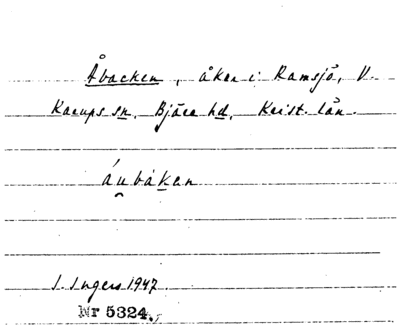 Åbacken, åker i Ramsjö, V.
Karups sn, Bjäre hd, Krist. län.
áu̯bàken
I. Ingers 1947.
Nr 5324.